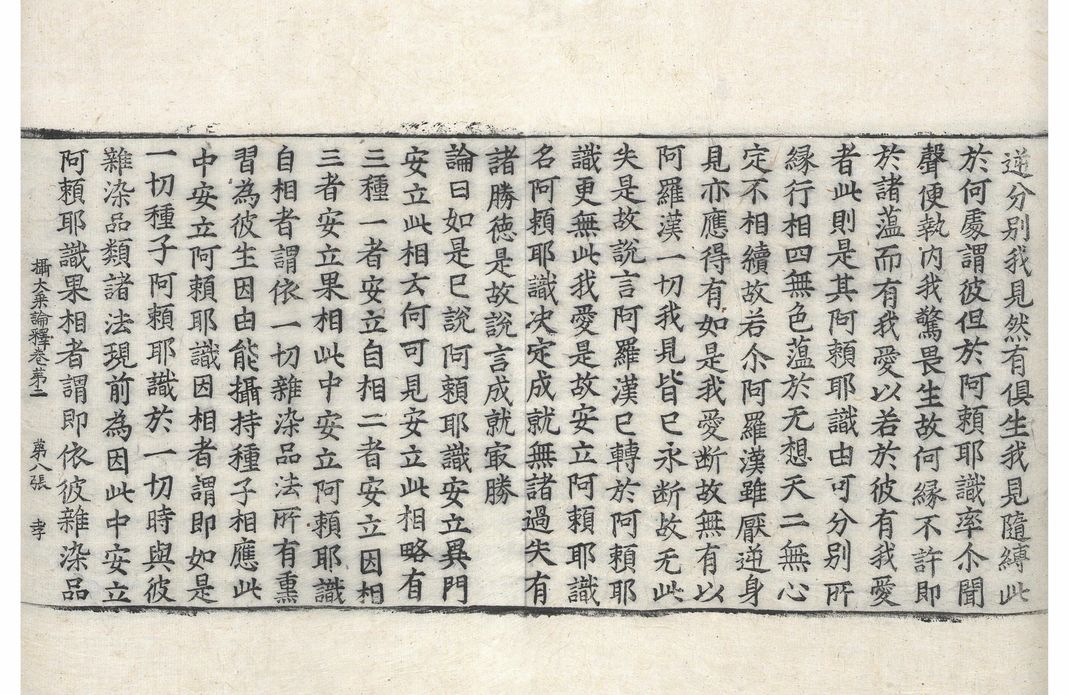 逆分别我見然有俱生我見隨縛此
於何處謂彼但於阿頼耶識率尒聞
聲便執內我驚畏生故何縁不許即
於諸藴而有我愛以若於彼有我愛
者此則是其阿頼耶識由可分別所
縁行相四無色藴於无想天二無心
定不相續故若尒阿羅漢雖厭逆身
見亦應得有如是我愛断故無有以
阿羅漢一切我見皆已永断故无此
失是故說言阿羅漢已轉於阿頼耶
識更無此我愛是故安立阿頼耶識
名阿頼耶識决定成就無諸過失有
諸勝徳是故說言成就㝡勝
論曰如是已說阿頼耶識安立異門
安立此相云何可見安立此相略有
三種一者安立自相二者安立因相
三者安立果相此中安立阿頼耶識
自相者謂依一切雜染品法所有熏
習為彼生因由能攝持種子相應此
中安立阿頼耶識因相者謂即如是
一切種子阿頼耶識於一切時與彼
雜染品類諸法現前為因此中安立
攝大乗論釋卷第二 第八張 孝
阿頼耶識果相者謂即依彼雜染品